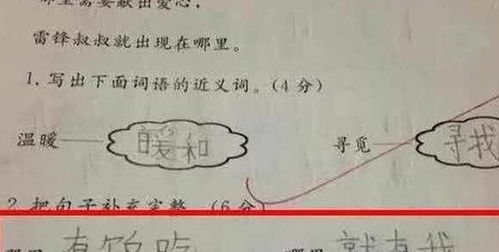 那里需要献出爱心，
雷锋叔叔就出现在哪里。
1.写出下面词语的近义词。(4分)
温暖 暖和 寻觅 寻找
2.把句子补充完整。(6分)
有的吃 就有我